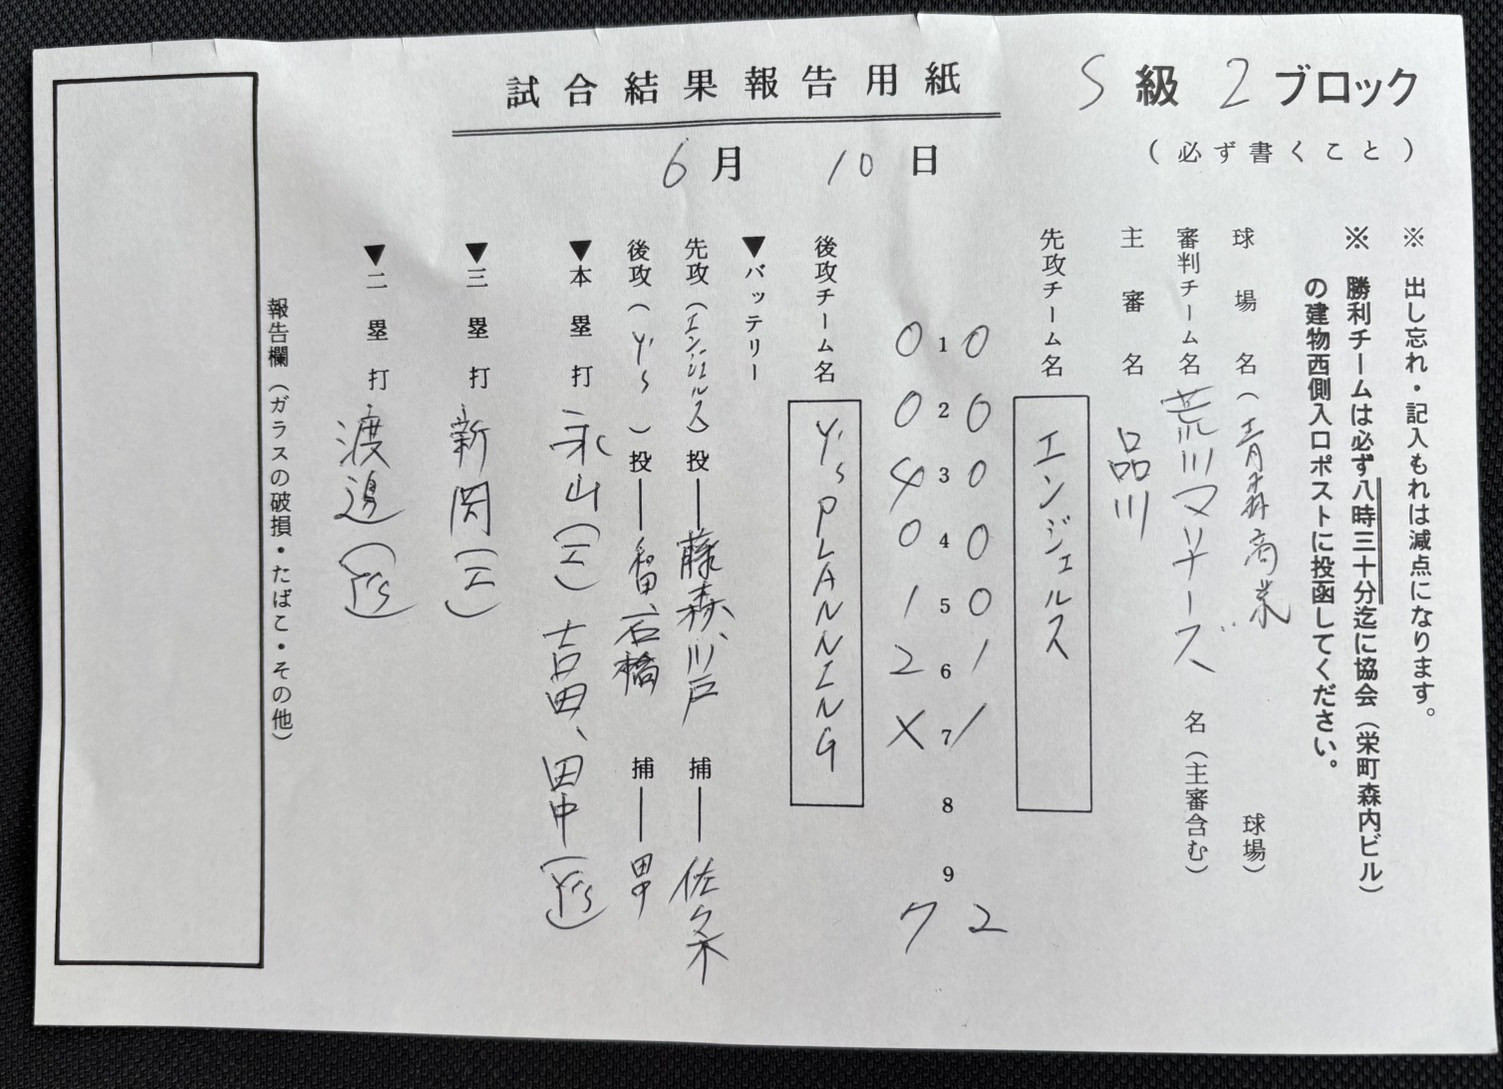 試合結果報告用紙
S級2ブロック
(必ず書くこと)
6月10日
※ 出し忘れ・記入もれは減点になります。
※ 勝利チームは必ず八時三十分迄に協会(栄町森内ビル)
の建物西側入口ポストに投函してください。
球場名(青森商業球場)
審判チーム名 荒川マリナーズ 名(主審含む)
主審名 品川
先攻チーム名 エンジェルス
0 0 0 0 0 1 1 2
1 2 3 4 5 6 7 8 9
0 0 4 0 1 2 X 7
後攻チーム名 Y's PLANNING
▼バッテリー
先攻(エンジェルス)投―藤森、川戸 捕―佐々木
後攻(Y's)投―和田、石橋 捕―田中
▼本塁打 永山(エ) 吉田、田中(Y's)
▼三塁打 新岡(エ)
▼二塁打 渡邊(Y's)
報告欄(ガラスの破損・たばこ・その他)